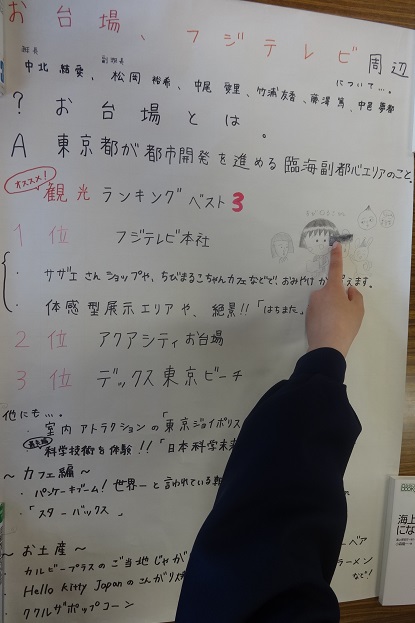 お台場、フジテレビ周辺
について…。
班長 副班長
中北 結愛、松岡 裕希、中尾 愛里、竹浦友香、藤澤 篤、中邑 夢都
? お台場とは。
A 東京都が都市開発を進める臨海副都心エリアのこと。
オススメ!
観光ランキングベスト3
1位 フジテレビ本社
・サザエさんショップや、ちびまるこちゃんカフェなどで、おみやげが えます。
・体感型展示エリアや、絶景!!「はちたま」
2位 アクアシティお台場
3位 デックス東京ビーチ
他にも…。
・室内アトラクションの「東京ジョイポリス
科学技術を体験!!「日本科学未来
~カフェ編~
・パンケーキブーム!世界一と言われている朝
・「スターバックス」
~お土産~
カルビープラスのご当地じゃが ベア
Hello Kitty Japanのこんがり ラーメン
ククルザポップコーン など!
海上
にな